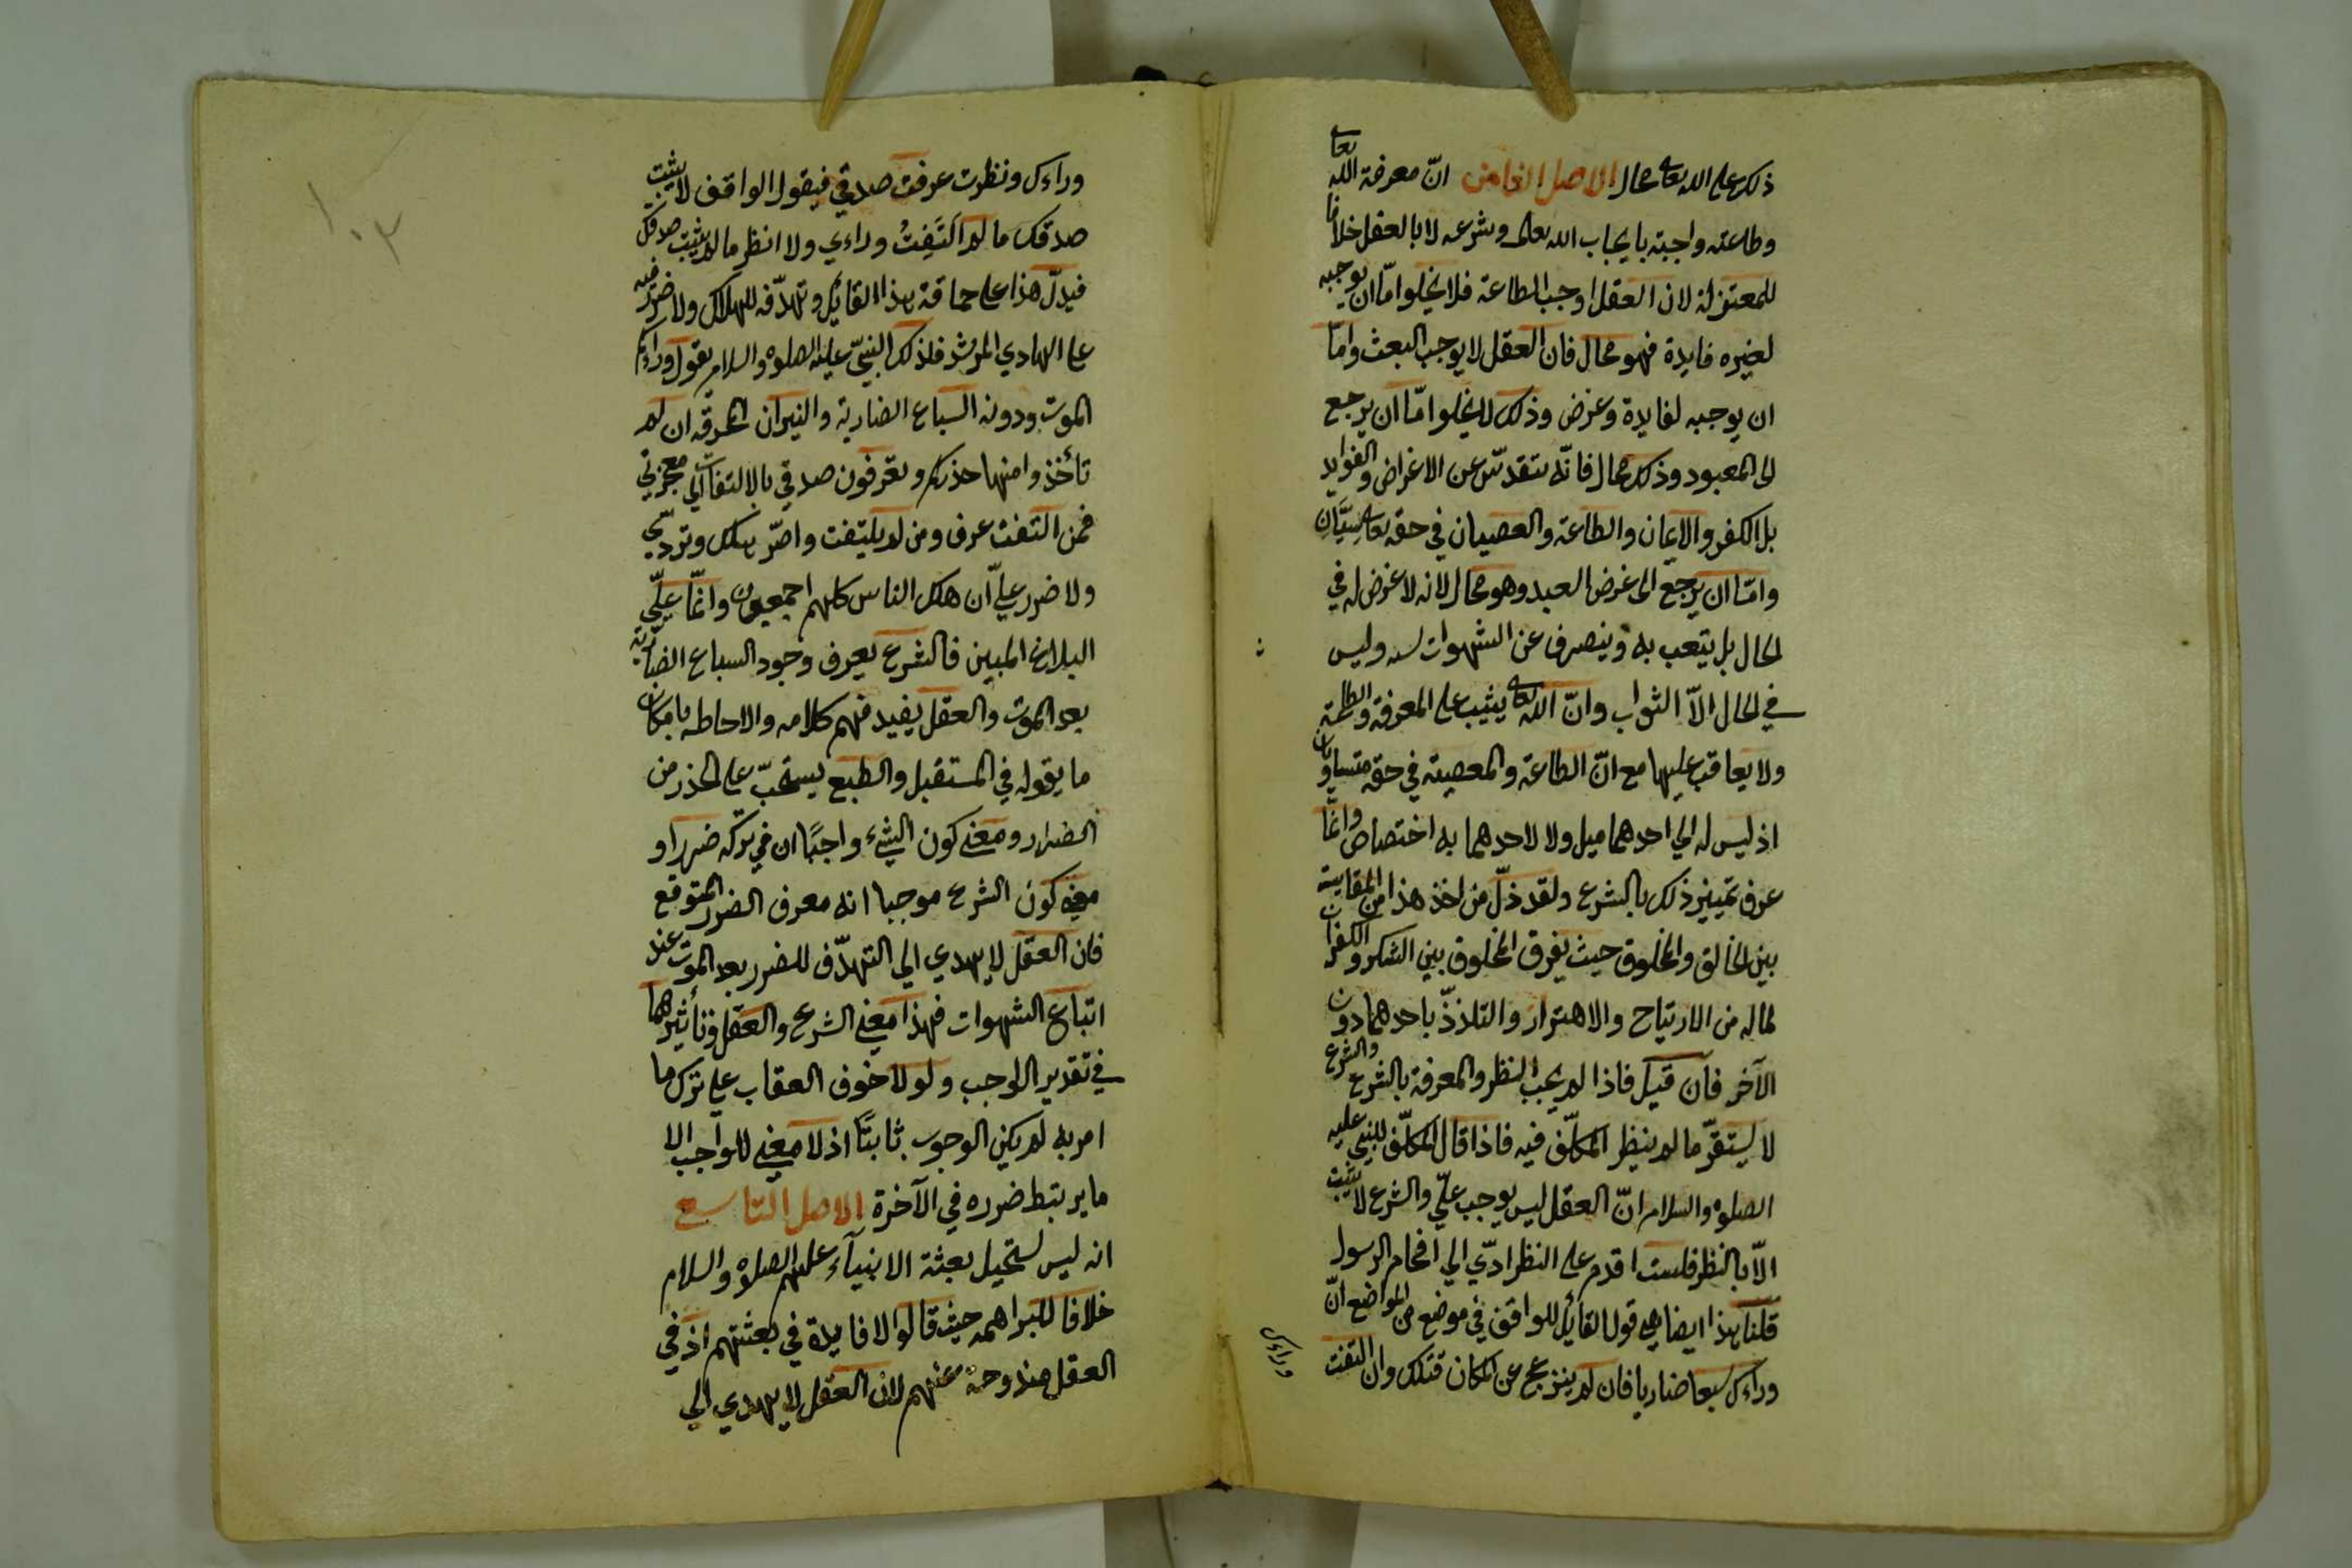 ذلك على الله تعالى محال الاصل الثامن انّ معرفة الله تعالى
وطاعته واجبة بايجاب الله تعالى وشرعه لا بالعقل خلافا
للمعتزلة لان العقل اوجب الطاعة فلا يخلو امّا ان يوجبه
لغيره فايدة فهو محال فان العقل لا يوجب العبث وامّا
ان يوجبه لفايدة وغرض وذلك لا يخلو امّا ان يرجع
الى المعبود وذلك محال فانّه يتقدّس عن الاغراض والفوايد
بل الكفر والايمان والطاعة والعصيان في حقه تعالى سِيَّانِ
وامّا ان يرجع الى غرض العبد وهو محال لانه لا غرض له في
الحال بل يتعب به وينصرف عن الشهوات لسه وليس
في الحال الّا الثواب وانّ الله تعالى يثيب على المعرفة والطاعة
ولا يعاقب عليها مع انّ الطاعة والمعصية في حقه متساويان
اذ ليس له الي احدهما ميل ولا لاحدهما به اختصاص وانّما
عرف تمييز ذلك بالشرع ولقد ذلّ من اخذ هذا من المقايسة
بين الخالق والمخلوق حيث يفرق المخلوق بين الشكر والكفران
لما له من الارتياح والاهتزاز والتلذذّ باحدهما دون
الآخر فان قيل فاذا لم يجب النظر والمعرفة بالشرع والشرع
لا يستقرّ ما لم ينظر المكلّف فيه فاذا قال المكلّف للنبي عليه
الصلوة والسلام انّ العقل ليس يوجب علّي والشرع لا يثبت
الّا بالنظر فلست اقدم على النظر ادّي الي افحام الرسول
قلنا هذا ايضاهي قول القائل للواقف في موضع من المواضع انّ
وراءك سبعا ضاريا فان لم ينزعج عن المكان قتلك وان التفت
وراءك
وراءك ونظرت عرفت صدقي فيقول الواقف لا يثبت
صدقك ما لم اَلتَفِتُ وراءي ولا انظر ما لم يثبت صدقك
فيدلّ هذا على حماقة هذا القائل وتهدّفه للهلاك ولا ضرر فيه
على الهادي المرشد فلذلك النبيّ عليه الصلوة والسلام يقول وراءكم
الموت ودونه السباع الضارية والنيران المحرقه ان لم
تأخذوا منها حذركم وتعرفون صدقي بالالتفات الي معجزتي
فمن التفت عرف ومن لم يلتفت واصرّ هلك وتردّي
ولا ضرر عليّ ان هلك الناس كلهم اجمعون وانّما عليّ
البلاغ المبين فالشرع يعرف وجود السباع الضارية
بعد الموت والعقل يفيد فهم كلامه والاحاطه بامكان
ما يقوله في المستقبل والطبع يستحبّ على الحذر من
الضرار ومعنى كون الشيء واجبًا ان في تركه ضررا و
معنى كون الشرع موجبا انه معرف الضرر المتوقع
فان العقل لا يهدي الي التهدّف للضرر بعد الموت عند
اتباع الشهوات فهذا معنى الشرع والعقل وتأثيرهما
في تقدير الواجب ولو لا خوف العقاب على ترك ما
امر به لم يكن الوجوب ثابتًا اذ لا معنى للواجب الا
ما يرتبط ضرره في الآخرة الاصل التاسع
انه ليس تستحيل بعثة الانبيآء عليهم الصلوة والسلام
خلافا للبراهمه حيث قالوا لا فايدة في بعثتهم اذ في
العقل مندوحة عنهم لان العقل لا يهدي الي
١٠٣